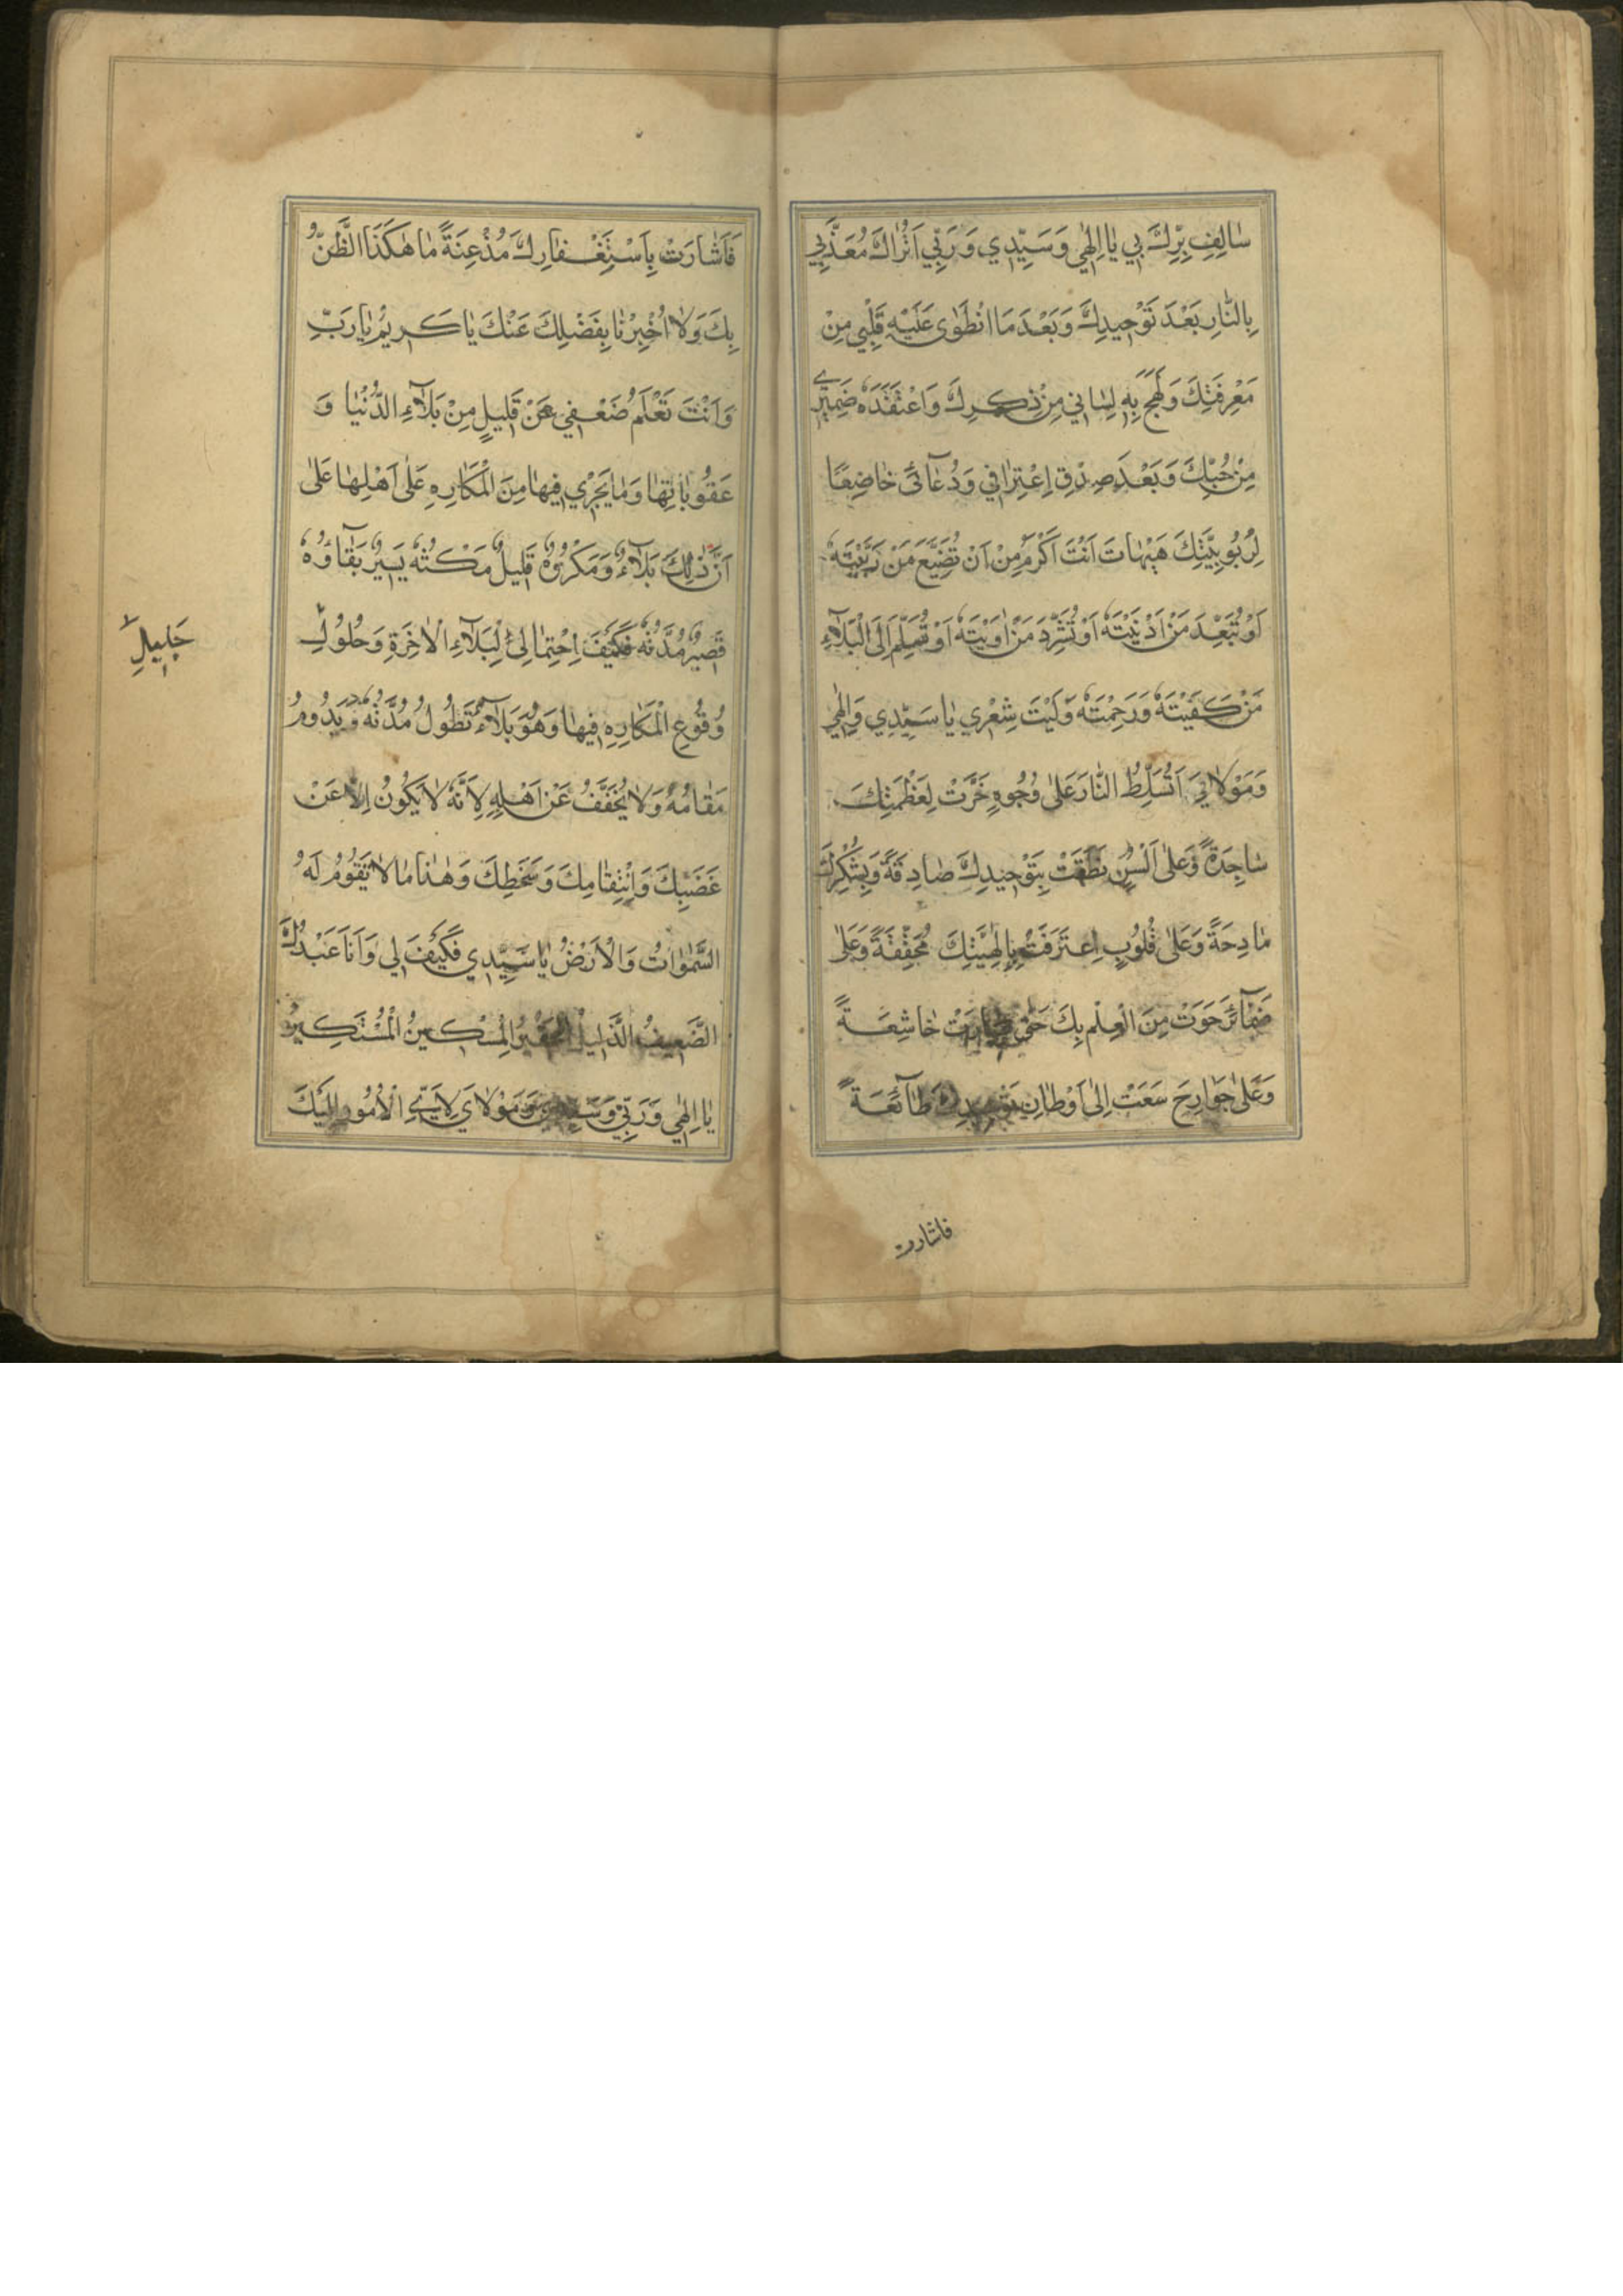 سٰالِفِ بِرِّكَ بي يٰا اِلٰهٖي وَسَيِّدِي وَرَبِّي اَتُرٰاكَ مُعَذِّبِي
بِالنّٰارِ بَعْدَ تَوْحِيدِكَ وَبَعْدَ مَا انْطَوٰى عَلَيْهِ قَلْبِي مِنْ
مَعْرِفَتِكَ وَلَهِجَ بِهِ لِسٰاني مِنْ ذِكْرِكَ وَاعْتَقَدَهُ ضَمِيرِي
مِنْ حُبِّكَ وَبَعْدَ صِدْقِ اِعْتِرٰافي وَدُعٰآئي خٰاضِعًا
لِرُبُوبِيَّتِكَ هَيْهٰاتَ اَنْتَ اَكْرَمُ مِنْ اَنْ تُضَيِّعَ مَنْ رَبَّيْتَهُ
اَوْ تُبَعِّدَ مَنْ اَدْنَيْتَهُ اَوْ تُشَرِّدَ مَنْ اٰوَيْتَهُ اَوْ تُسَلِّمَ اِلَى الْبَلٰآءِ
مَنْ كَفَيْتَهُ وَرَحِمْتَهُ وَلَيْتَ شِعْرِي يٰا سَيِّدِي وَاِلٰهِي
وَمَوْلٰايَ اَتُسَلِّطُ النّٰارَ عَلٰى وُجُوهٍ خَرَّتْ لِعَظَمَتِكَ
سٰاجِدَةً وَعَلٰى اَلْسُنٍ نَطَقَتْ بِتَوْحِيدِكَ صٰادِقَةً وَبِشُكْرِكَ
مٰادِحَةً وَعَلٰى قُلُوبٍ اِعْتَرَفَتْ بِاِلٰهِيَّتِكَ مُحَقِّقَةً وَعَلٰى
ضَمٰآئِرَ حَوَتْ مِنَ الْعِلْمِ بِكَ حَتّٰى صٰارَتْ خٰاشِعَةً
وَعَلٰى جَوٰارِحَ سَعَتْ اِلٰى اَوْطٰانِ طٰآئِعَةً
فاشارت
فَاَشٰارَتْ بِاسْتِغْفٰارِكَ مُذْعِنَةً مٰا هٰكَذَا الظَّنُّ
بِكَ وَلٰا اُخْبِرْنٰا بِفَضْلِكَ عَنْكَ يٰا كَرِيمُ يٰا رَبِّ
وَاَنْتَ تَعْلَمُ ضَعْفي عَنْ قَلِيلٍ مِنْ بَلٰآءِ الدُّنْيٰا وَ
عَقُوبٰاتِهٰا وَمٰا يَجْرِي فِيهٰا مِنَ الْمَكٰارِهِ عَلٰى اَهْلِهٰا عَلٰى
اَنَّ ذٰلِكَ بَلٰآءٌ وَمَكْرُوهٌ قَلِيلٌ مَكْثُهُ يَسِيرٌ بَقٰاؤُهُ
قَصِيرٌ مُدَّتُهُ فَكَيْفَ اِحْتِمٰالي لِبَلٰآءِ الْاٰخِرَةِ وَحُلُولِ
جَلِيلِ
وُقُوعِ الْمَكٰارِهِ فِيهٰا وَهُوَ بَلٰآءٌ تَطُولُ مُدَّتُهُ وَيَدُومُ
مَقٰامُهُ وَلٰا يُخَفَّفُ عَنْ اَهْلِهِ لِاَنَّهُ لٰا يَكُونُ اِلّٰا عَنْ
غَضَبِكَ وَانْتِقٰامِكَ وَسَخَطِكَ وَهٰذٰا مٰا لٰا تَقُومُ لَهُ
السَّمٰوٰاتُ وَالْاَرْضُ يٰا سَيِّدِي فَكَيْفَ لي وَاَنَا عَبْدُكَ
الضَّعِيفُ الذَّلِيلُ الْحَقِيرُ الْمِسْكِينُ الْمُسْتَكِينُ
يٰا اِلٰهي وَرَبّي وَسَيِّدِي وَمَوْلٰايَ لِاَيِّ الْاُمُورِ اِلَيْكَ